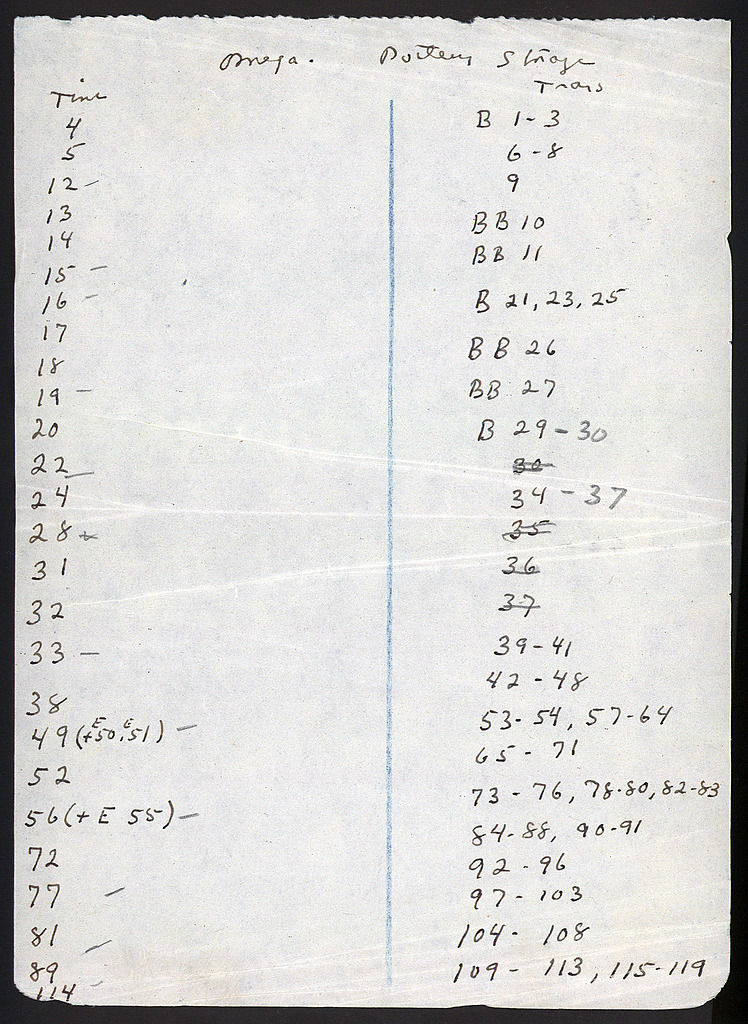 Omega. Pottery Storage
Tins Trays
4 B 1-3
5 6-8
12 - 9
13 BB 10
14 BB 11
15 -
16 - B 21, 23, 25
17 BB 26
18
19 - BB 27
20 B 29-30
22 - 30
24 34-37
28 - 35
31 36
32 37
33 - 39-41
38 42-48
49 (+E50, E51) - 53-54, 57-64
52 65-71
56 (+ E 55) - 73-76, 78-80, 82-83
72 84-88, 90-91
92-96
77 - 97-103
81 - 104-108
89 109-113, 115-119
114 -